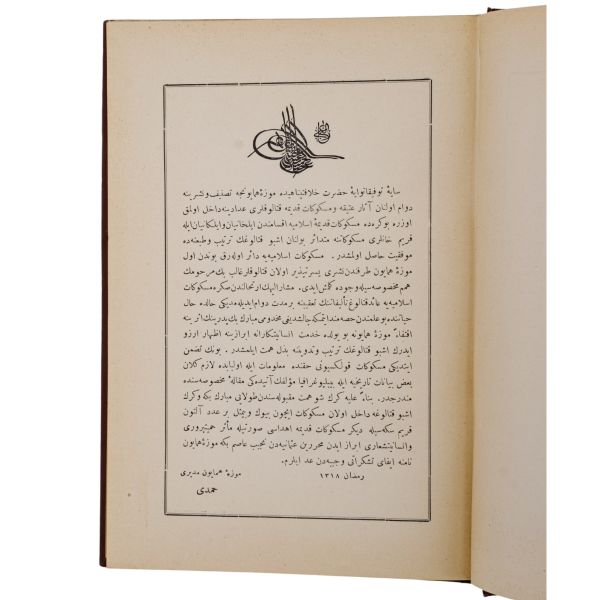 سایهٔ توفیقاتوایهٔ حضرت خلافتپناهیده موزهٔ همایونجه تصنیف ونشرینه
دوام اولنان آثار عتیقه ومسکوکات قدیمه قتالوقلری عدادینه داخل اولمق
اوزره بوکرەده مسکوکات قدیمهٔ اسلامیه اقسامندن ایلخانیان وایلکانیان ایله
قریم خانلری مسکوکاتنه متدائر بولنان اشبو قتالوغك ترتیب وطبعنده
موفقیت حاصل اولمشدر . مسکوکات اسلامیه یه دائر اوله رق بوندن اول
موزهٔ همایون طرفندن نشری میسر اولان قتالوقلر غالب بك مرحومك
همم مخصوصه سیله وجوده کلمش ایدی . مشارالیهك ارتحالندن صکره مسکوکات
اسلامیه یه عائد قتالوغ تألیفاتنك تعقیبنه بر مدت دوام ایدیله مدیکی حالده حال
حیاتنده بو علمندن حصه مند ایتمکه چالشدیغی مخدومی مبارك بك پدرینك اثرینه
اقتفاءً موزهٔ همایونه بو یولده خدمت انسانیتکارانه ابرازینه اظهار ارزو
ایدرك اشبو قتالوغك ترتیب وتدوینه بذل همت ایلمشدر . بونك تضمن
ایتدیکی مسکوکات قولکسیونی حقنده معلومات ایله اولبابده لازم کلان
بعض بیانات تاریخیه ایله بیبلیوغرافیا مؤلفك آتیده کی مقالهٔ مخصوصه سنده
مندرجدر . بناءً علیه کرك شو همت مقبوله سندن طولایی مبارك بکه وکرك
اشبو قتالوغه داخل اولان مسکوکات ایچون بیوك وبیمثل بر عدد آلتون
قریم سکه سیله دیکر مسکوکات قدیمه اهداسی صورتیله مآثر حمیتپروری
وانسانیتشعاری ابراز ایدن محررین عثمانیه دن نجیب عاصم بکه موزهٔ همایون
نامنه ایفای تشکراتی وجیبه دن عد ایلرم.
رمضان ١٣١٨ موزهٔ همایون مدیری
حمدی